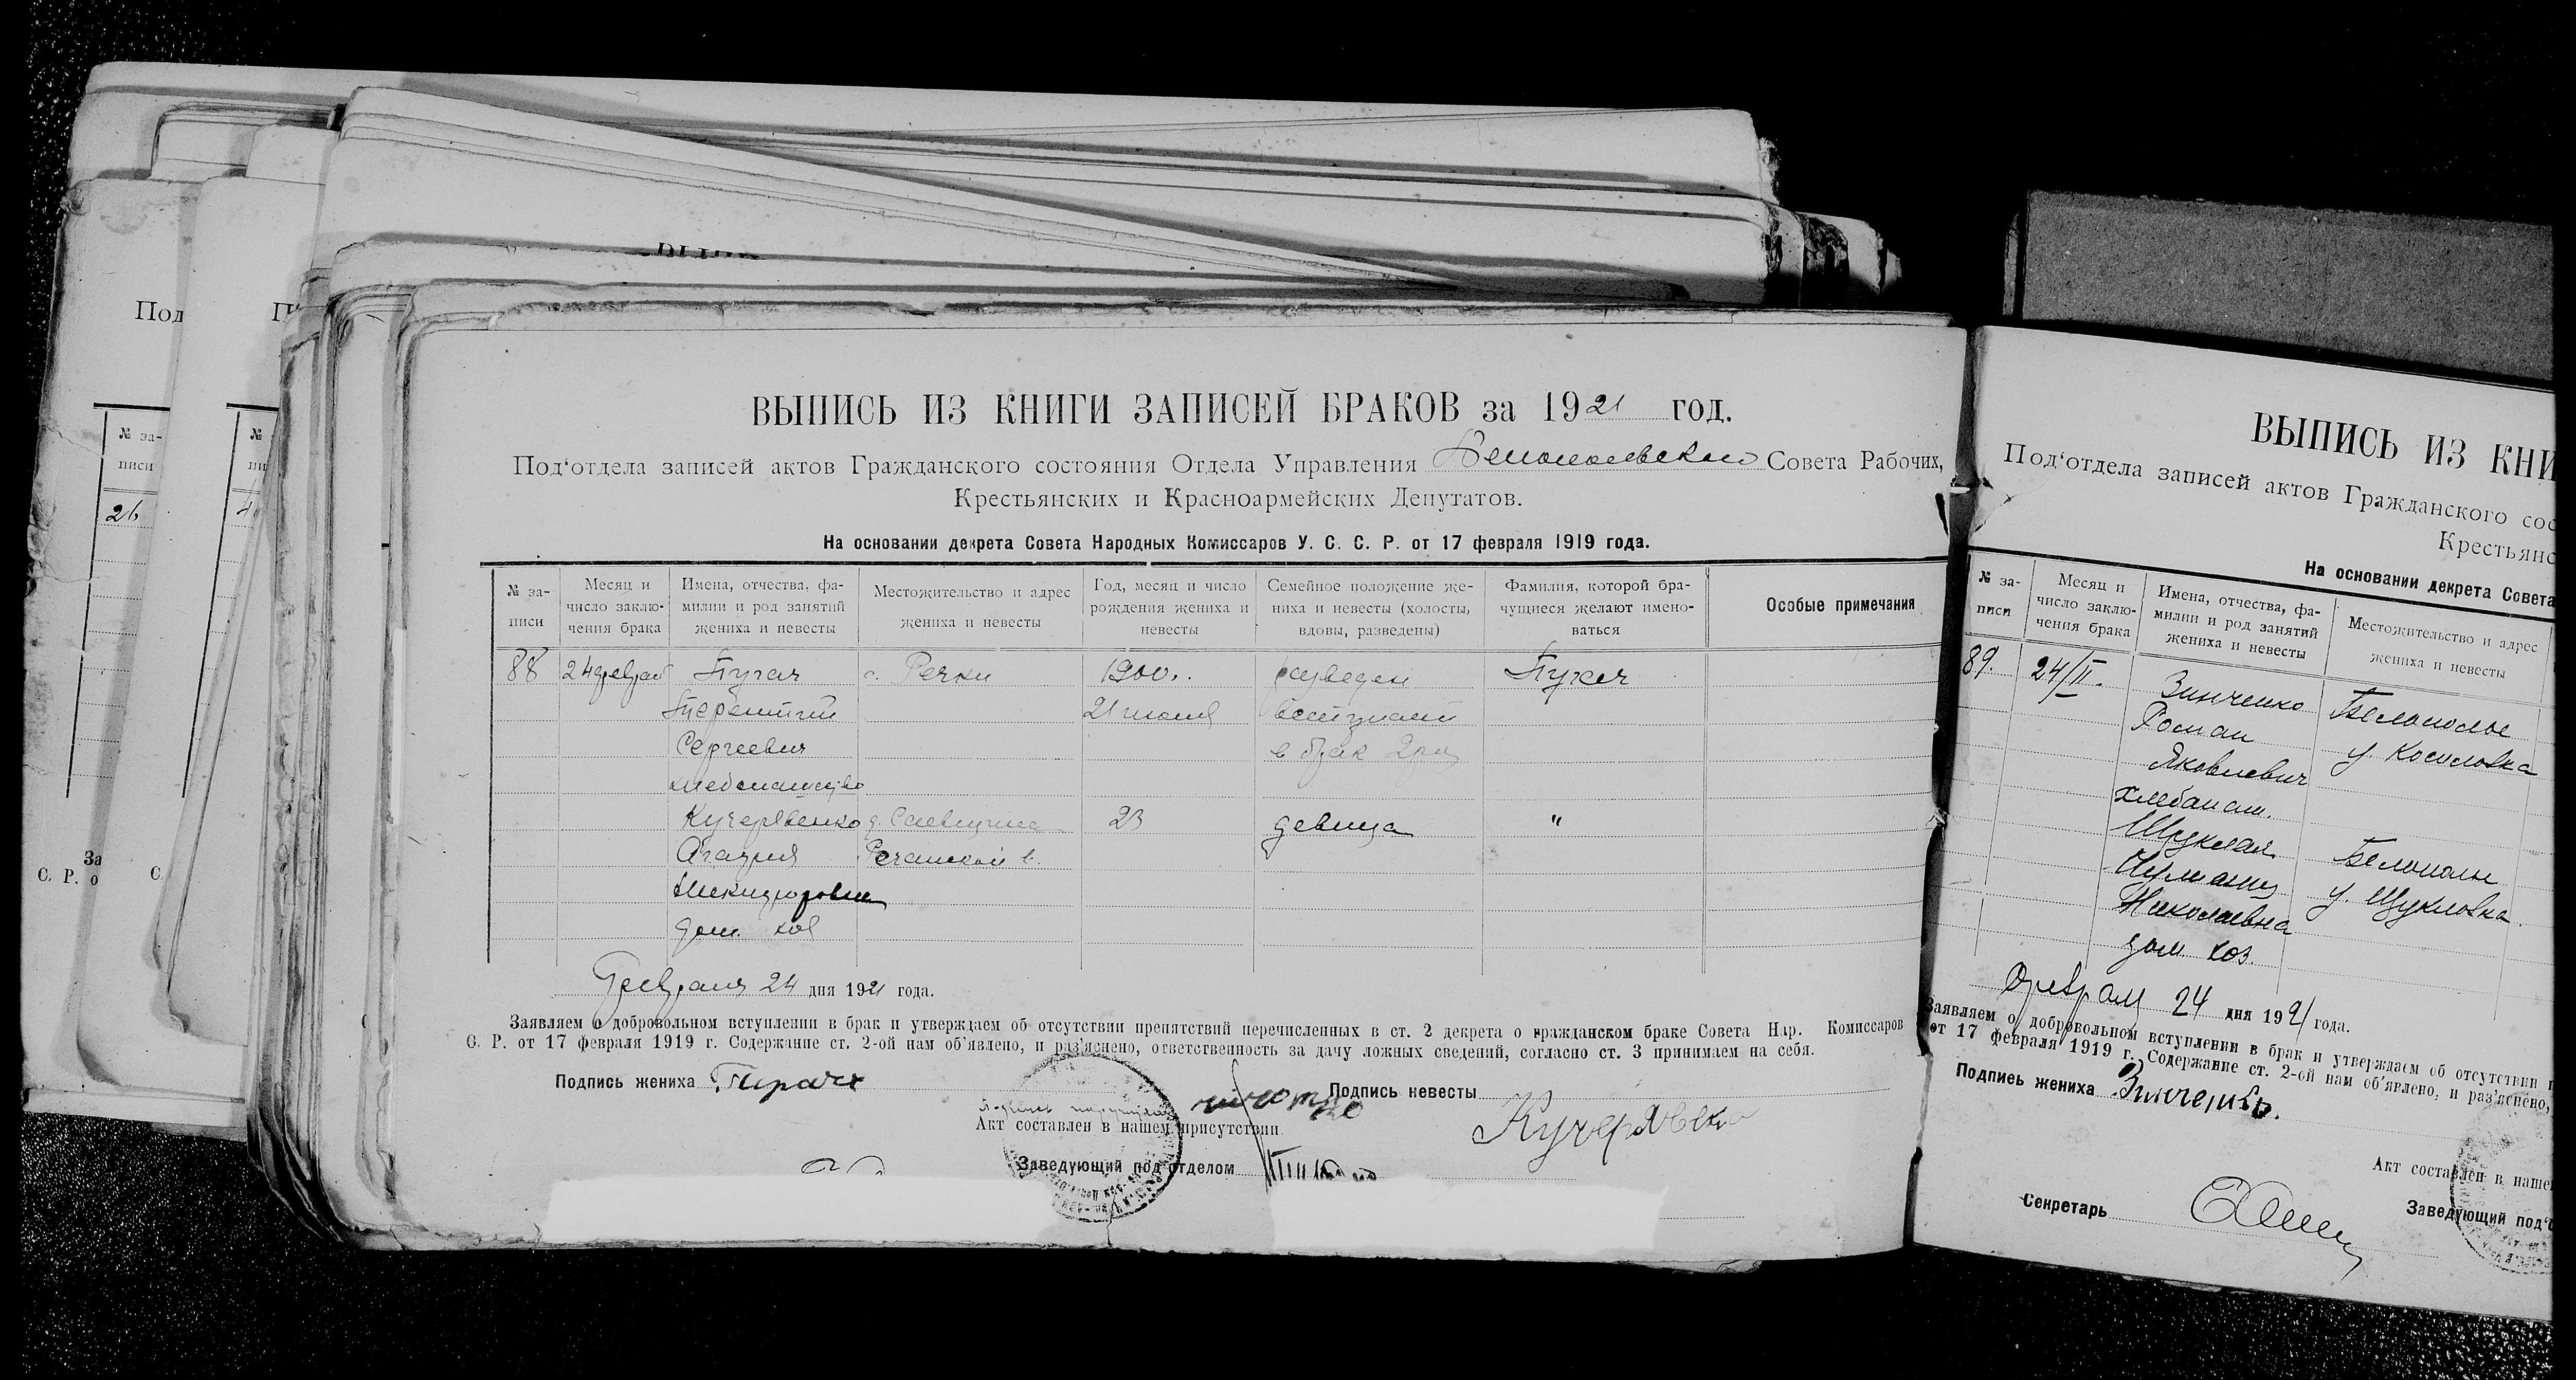 Под
П
№ за-
писи
26
№
пи
За
С. Р. о
С.
ВЫПИСЬ ИЗ КНИГИ ЗАПИСЕЙ БРАКОВ за 1921 год.
Под‘отдела записей актов Гражданского состояния Отдела Управления Белопольского Совета Рабочих,
Крестьянских и Красноармейских Депутатов.
На основании декрета Совета Народных Комиссаров У. С. С. Р. от 17 февраля 1919 года.
№ за-
писи
Месяц и
число заклю-
чения брака
Имена, отчества, фа-
милии и род занятий
жениха и невесты
Местожительство и адрес
жениха и невесты
Год, месяц и число
рождения жениха и
невесты
Семейное положение же-
ниха и невесты (холосты,
вдовы, разведены)
Фамилия, которой бра-
чущиеся желают имено-
ваться
Особые примечания
88 24 феврал Пугач с. Речки 1900 г. разведен Пугач
Терентий 21 июня вступает
Сергеевич в брак 2 раз
хлебопашество
Кучерявенко д. 23 девица "
Агафия Речанской в.
Никифоровна
дом. хоз
Февраля 24 дня 1921 года.
Заявляем о добровольном вступлении в брак и утверждаем об отсутствии препятствий перечисленных в ст. 2 декрета о гражданском браке Совета Нар. Комиссаров
С. Р. от 17 февраля 1919 г. Содержание ст. 2-ой нам об‘явлено, и раз‘яснено, ответственность за дачу ложных сведений, согласно ст. 3 принимаем на себя.
Подпись жениха
Подпись невесты
Акт составлен в нашем присутствии.
Заведующий под‘отделом
ВЫПИСЬ ИЗ КНИ
Под‘отдела записей актов Гражданского сос
Крестьянс
На основании декрета Совета
№ за-
писи
Месяц и
число заклю-
чения брака
Имена, отчества, фа-
милии и род занятий
жениха и невесты
Местожительство и адрес
жениха и невесты
89. 24/II. Зинченко Белополье
Роман у. Косиловка
Яковлевич
хлебопаш.
Белополье
у. Щукловка
Николаевна
дом хоз.
Феврал 24 дня 1921 года.
Заявляем о добровольном вступлении в брак и утверждаем об отсутствии п
от 17 февраля 1919 г. Содержание ст. 2-ой нам об‘явлено, и раз‘яснено,
Подпись жениха
Акт составлен в наше
Секретарь
Заведующий под‘о